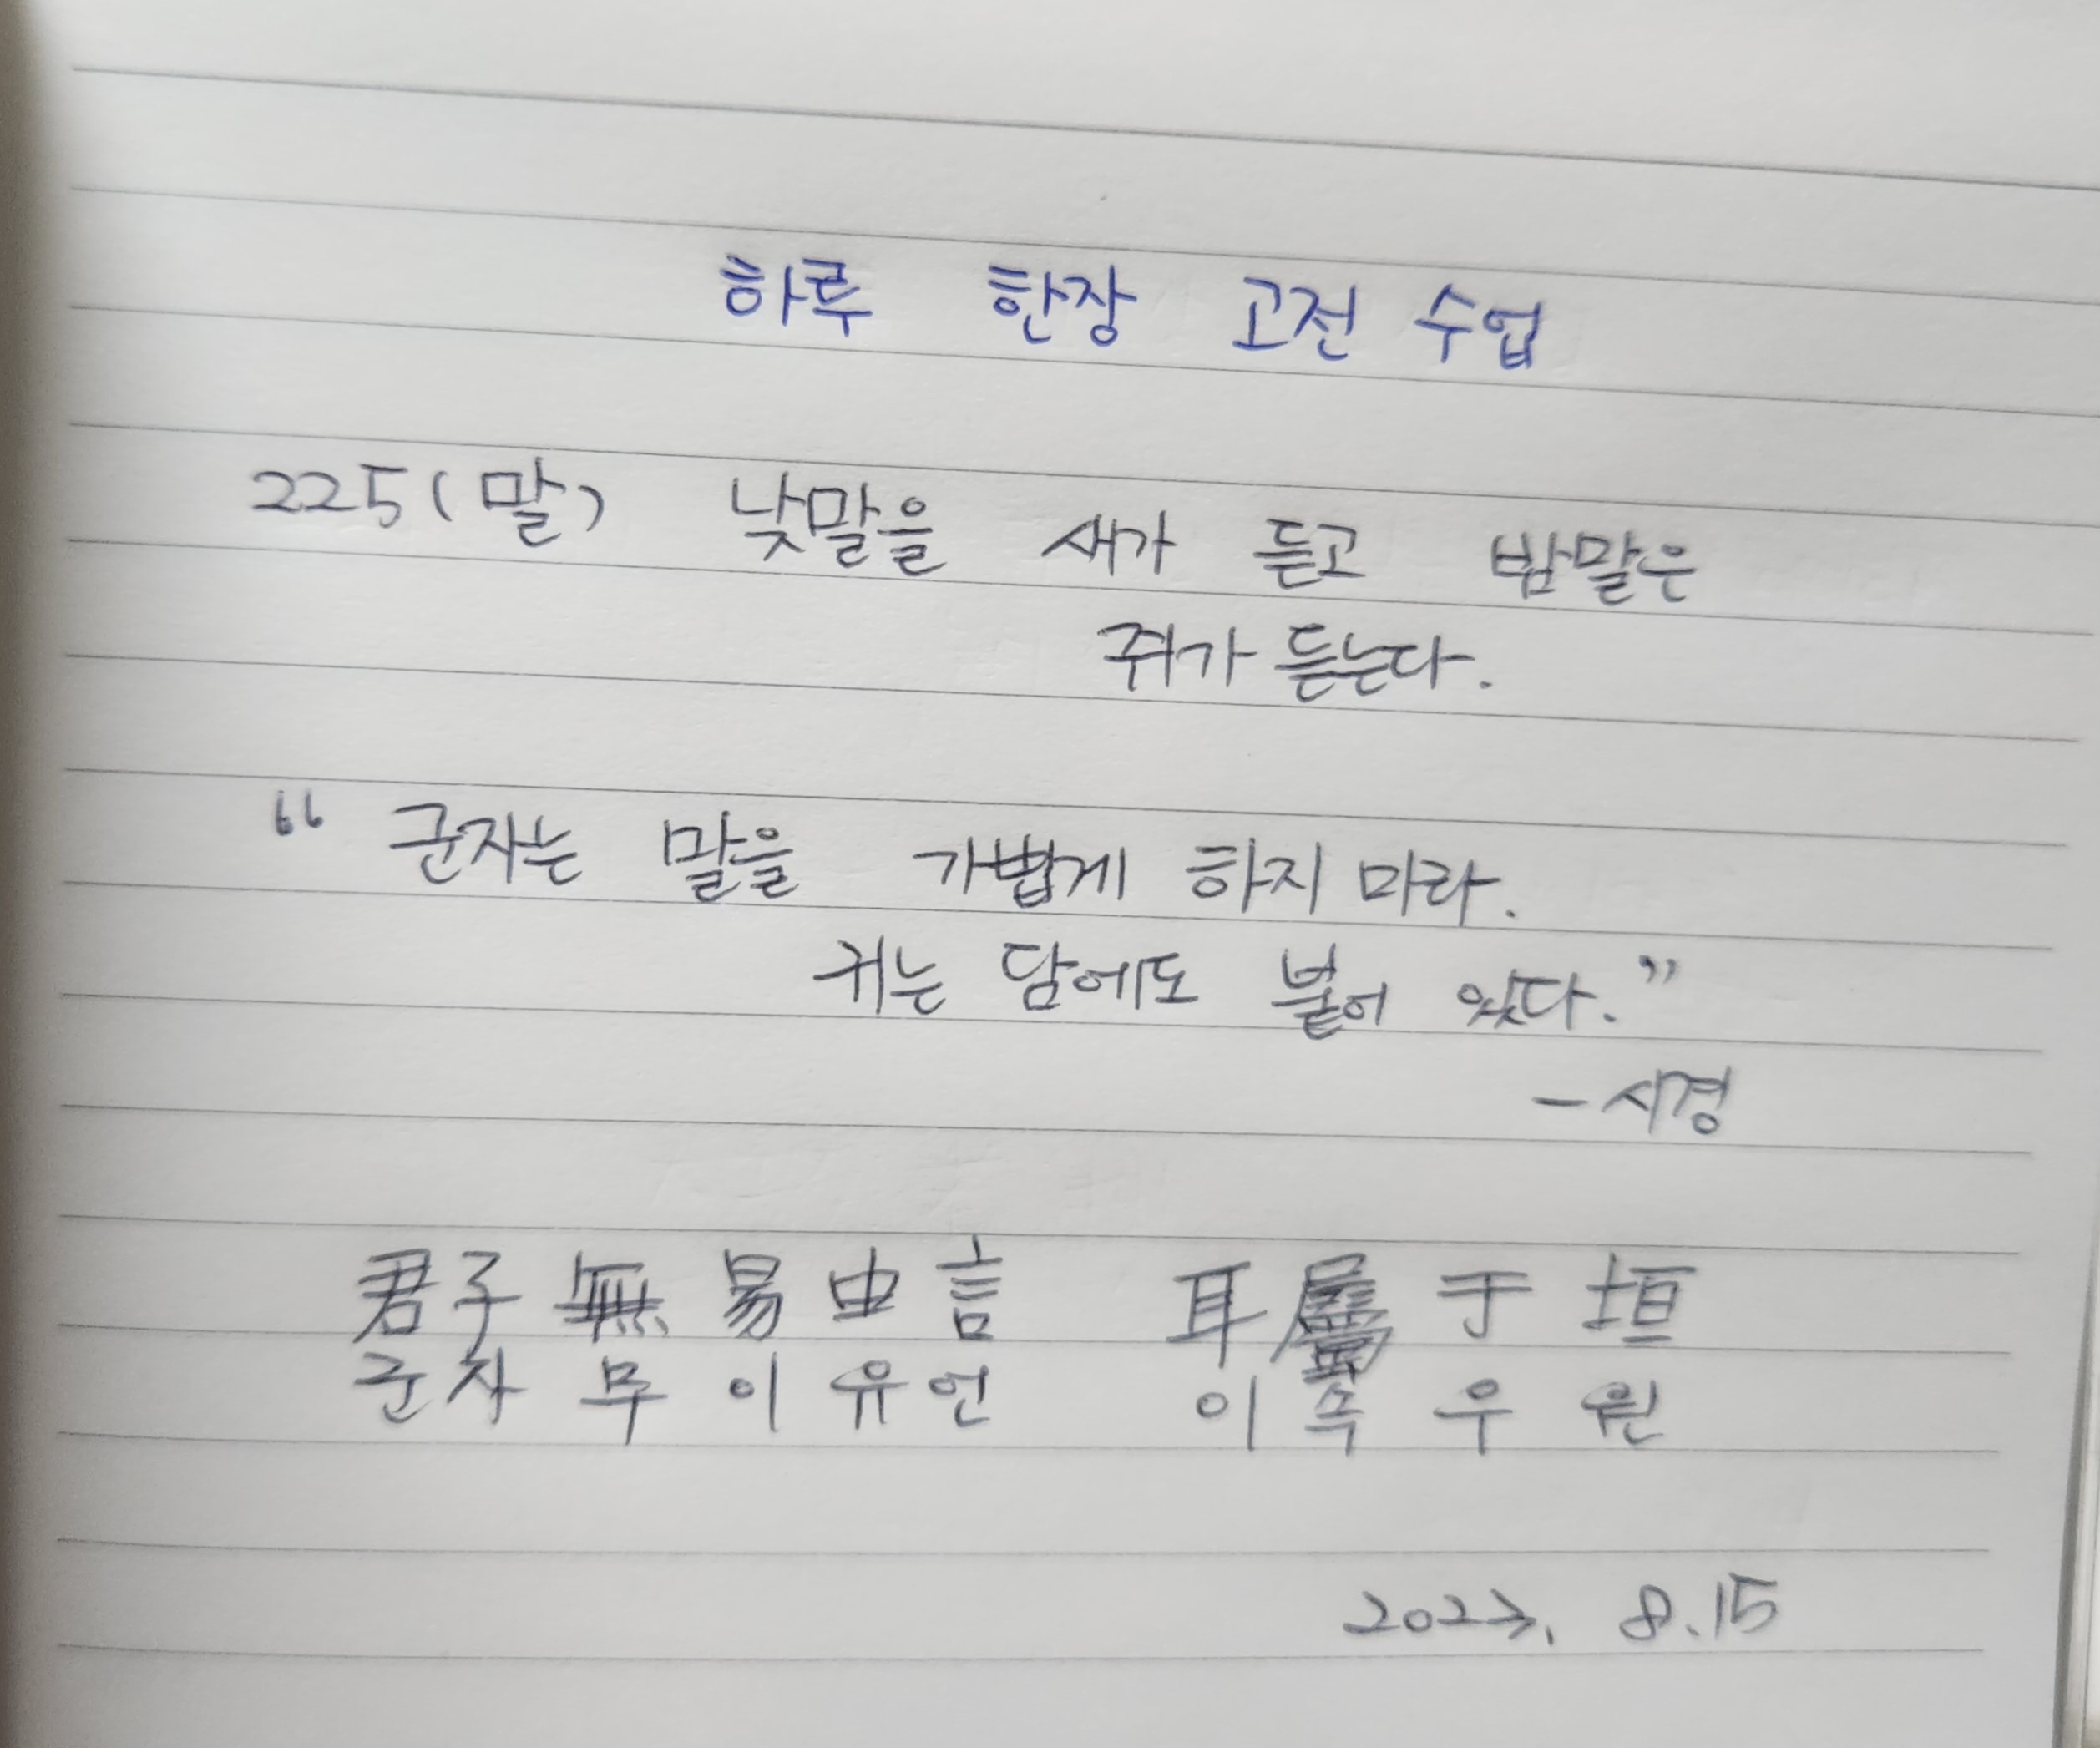 하루 한장 고전 수업
225(말) 낮말을 새가 듣고 밤말은
쥐가 듣는다.
“ 군자는 말을 가볍게 하지 마라.
귀는 담에도 붙어 있다.”
- 시경
君子無易由言 耳屬于垣
군자 무 이 유 언 이 속 우 원
8.15